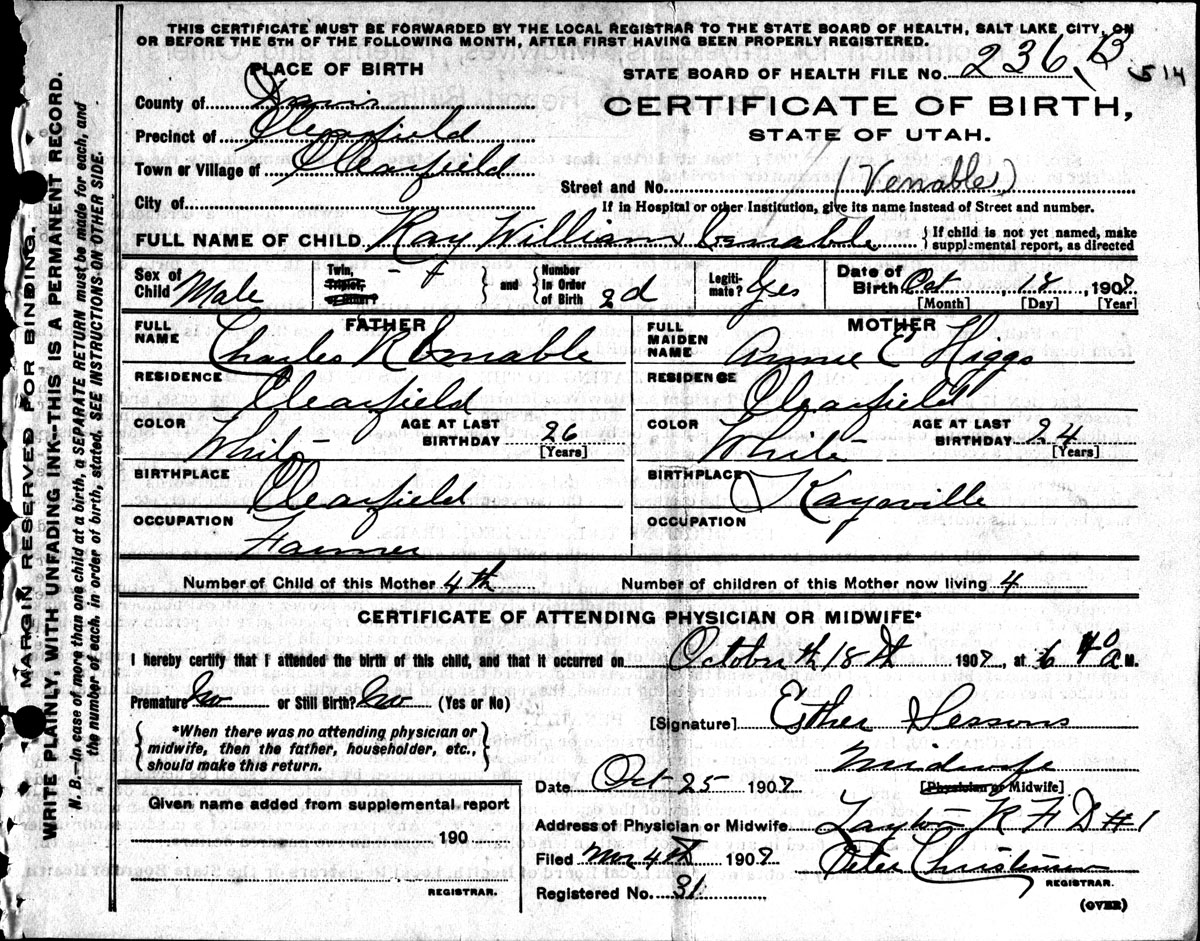 THIS CERTIFICATE MUST BE FORWARDED BY THE LOCAL REGISTRAR TO THE STATE BOARD OF HEALTH, SALT LAKE CITY, ON
OR BEFORE THE 5TH OF THE FOLLOWING MONTH, AFTER FIRST HAVING BEEN PROPERLY REGISTERED.
PLACE OF BIRTH
STATE BOARD OF HEALTH FILE No. 236 B 514
County of Davis
CERTIFICATE OF BIRTH,
Precinct of Clearfield
STATE OF UTAH.
Town or Village of Clearfield
Street and No. (Venable)
City of
If in Hospital or other Institution, give its name instead of Street and number.
FULL NAME OF CHILD Ray William Venable } If child is not yet named, make supplemental report, as directed
Sex of Child Male
Twin, Triplet, or Other? and { Number in Order of Birth 2d
Legitimate? Yes
Date of Birth Oct 18, 1908
[Month] [Day] [Year]
FATHER
MOTHER
FULL NAME Charles R Venable
FULL MAIDEN NAME Annie E Higgs
RESIDENCE Clearfield
RESIDENCE Clearfield
COLOR White
AGE AT LAST BIRTHDAY 26 [Years]
COLOR White
AGE AT LAST BIRTHDAY 24 [Years]
BIRTHPLACE Clearfield
BIRTHPLACE Kaysville
OCCUPATION Farmer
OCCUPATION
Number of Child of this Mother 4th
Number of children of this Mother now living 4
CERTIFICATE OF ATTENDING PHYSICIAN OR MIDWIFE*
I hereby certify that I attended the birth of this child, and that it occurred on October 18th 1908, at 6 40 a M.
Premature No or Still Birth? No (Yes or No)
{ *When there was no attending physician or
midwife, then the father, householder, etc.,
should make this return. }
[Signature] Esther Sessons
Midwife
[Physician or Midwife]
Date Oct 25 1908
Given name added from supplemental report
190
REGISTRAR.
Address of Physician or Midwife Layton R F D #1
Filed Nov 4th 1908 Peter Christensen
REGISTRAR.
Registered No. 31
(OVER)
MARGIN RESERVED FOR BINDING.
WRITE PLAINLY, WITH UNFADING INK--THIS IS A PERMANENT RECORD.
N. B.—In case of more than one child at a birth, a SEPARATE RETURN must be made for each, and
the number of each, in order of birth, stated. SEE INSTRUCTIONS ON OTHER SIDE.